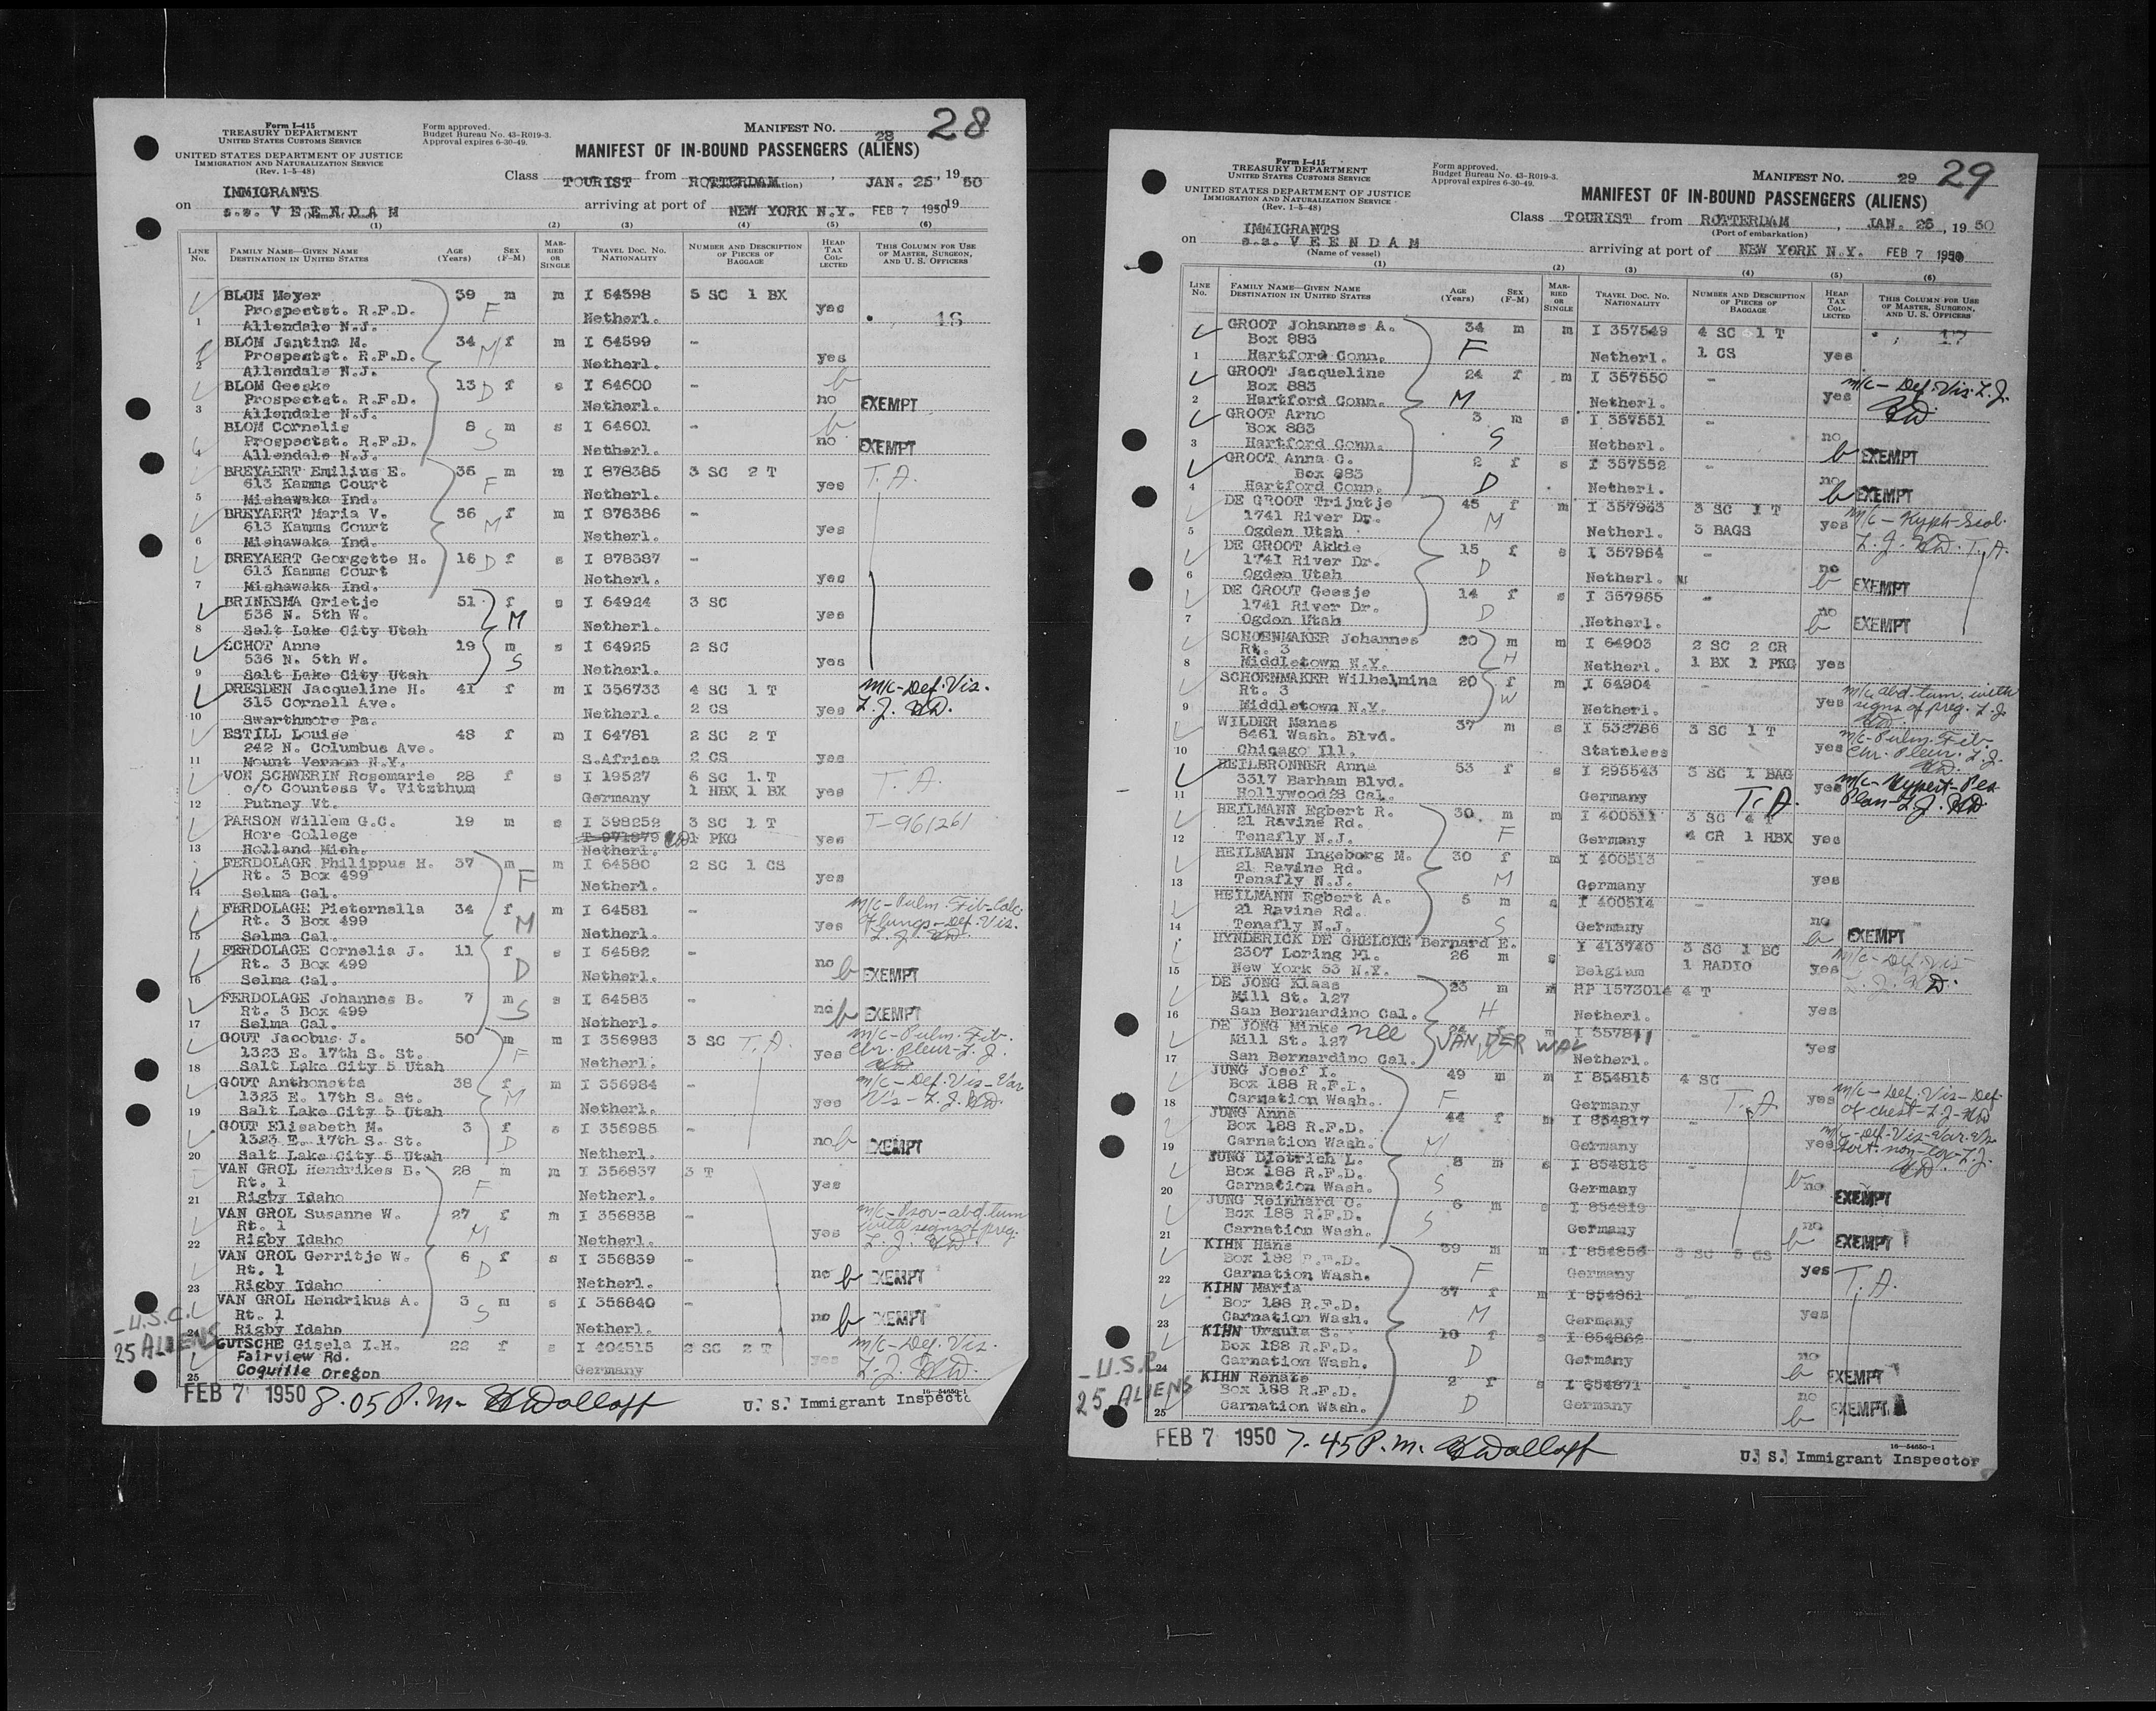 Form I-415
TREASURY DEPARTMENT
UNITED STATES CUSTOMS SERVICE
UNITED STATES DEPARTMENT OF JUSTICE
IMMIGRATION AND NATURALIZATION SERVICE
(Rev. 1-5-48)
Form approved.
Budget Bureau No. 43-R019-3.
Approval expires 6-30-49.
MANIFEST NO. 28 28
MANIFEST OF IN-BOUND PASSENGERS (ALIENS)
Class TOURIST from ROTTERDAM, JAN. 25, 19 50
IMMIGRANTS
on s.s. VEENDAM arriving at port of NEW YORK N.Y. FEB 7 1950 19
(Name of vessel)
(1) (2) (3) (4) (5) (6)
LINE No. FAMILY NAME—GIVEN NAME DESTINATION IN UNITED STATES AGE (Years) SEX (F-M) MARRIED OR SINGLE TRAVEL DOC. NO. NATIONALITY NUMBER AND DESCRIPTION OF PIECES OF BAGGAGE HEAD TAX COLLECTED THIS COLUMN FOR USE OF MASTER, SURGEON, AND U. S. OFFICERS
BLOM Meyer 39 m m I 64598 5 SC 1 BX
Prospectst. R.F.D. F yes
1 Allendale N.J. Netherl.
BLOM Jantina M. 34 M f m I 64599 -
Prospectst. R.F.D. yes
2 Allendale N.J. Netherl.
BLOM Geeske 13 D f s I 64600 - b
Prospectst. R.F.D. no EXEMPT
3 Allendale N.J. Netherl.
BLOM Cornelis 8 m s I 64601 - b
Prospectst. R.F.D. S no EXEMPT
4 Allendale N.J. Netherl.
BREYAERT Emilius E. 36 m m I 878385 3 SC 2 T T.A.
613 Kamms Court F yes
5 Mishawaka Ind. Netherl.
BREYAERT Maria V. 36 f m I 878386 -
613 Kamms Court M yes
6 Mishawaka Ind. Netherl.
BREYAERT Georgette H. 16 D f s I 878387 -
613 Kamms Court yes
7 Mishawaka Ind. Netherl.
BRINKSMA Grietje 51 f s I 64924 3 SC
536 N. 5th W. M yes
8 Salt Lake City Utah Netherl.
ECHOT Anne 19 m s I 64925 2 SC
536 N. 5th W. S yes
9 Salt Lake City Utah Netherl.
DRESDEN Jacqueline H. 41 f m I 356733 4 SC 1 T m/c-Def.Vis.
315 Cornell Ave. 2 CS yes
10 Swarthmore Pa. Netherl.
ESTILL Louise 48 f m I 64781 2 SC 2 T
242 N. Columbus Ave. 2 CS yes
11 Mount Vernon N.Y. S.Africa
VON SCHWERIN Rosemarie 28 f s I 19527 6 SC 1 T T.A.
c/o Countess V. Vitzthum 1 HBX 1 BX yes
12 Putney Vt. Germany
PARSON Willem G.C. 19 m s I 398252 3 SC 1 T T-961261
Hore College T 971879 1 PKG yes
13 Holland Mich. Netherl.
FERDOLAGE Philippus H. 37 m m I 64580 2 SC 1 CS
Rt. 3 Box 499 F yes
14 Selma Cal. Netherl.
FERDOLAGE Pieternella 34 f m I 64581 - m/c-Pulm. Fib-Calc.
Rt. 3 Box 499 M yes of lungs-Def.Vis.
15 Selma Cal. Netherl.
FERDOLAGE Cornelia J. 11 f s I 64582 -
Rt. 3 Box 499 D no b EXEMPT
16 Selma Cal. Netherl.
FERDOLAGE Johannes B. 7 m s I 64583 -
Rt. 3 Box 499 S no b EXEMPT
17 Selma Cal. Netherl.
GOUT Jacobus J. 50 m m I 356983 3 SC T.A. m/c-Pulm. Fib.
1323 E. 17th S. St. F yes Chr. Pleur-
18 Salt Lake City 5 Utah Netherl.
GOUT Anthonetta 38 f m I 356984 - m/c-Def.Vis-Var
1323 E. 17th S. St. M yes
19 Salt Lake City 5 Utah Netherl.
GOUT Elisabeth M. 3 f s I 356985 -
1323 E. 17th S. St. D no b EXEMPT
20 Salt Lake City 5 Utah Netherl.
VAN GROL Hendrikes B. 28 m m I 356837 3 T
Rt. 1 F yes
21 Rigby Idaho Netherl.
VAN GROL Susanne W. 27 f m I 356838 - abd tum
Rt. 1 M yes with signs of preg.
22 Rigby Idaho Netherl.
VAN GROL Gerritje W. 6 f s I 356839 -
Rt. 1 D no b EXEMPT
23 Rigby Idaho Netherl.
VAN GROL Hendrikus A. 3 m s I 356840 -
Rt. 1 S no b EXEMPT
24 Rigby Idaho Netherl.
GUTSCHE Gisela I.H. 22 f s I 404515 2 SC 2 T m/c-Def.Vis.
Fairview Rd. yes
25 Coquille Oregon Germany
- U.S.C.
25 ALIENS
FEB 7 1950 8.05 P.M.
U. S. Immigrant Inspector
16-54650-1
Form I-415
TREASURY DEPARTMENT
UNITED STATES CUSTOMS SERVICE
UNITED STATES DEPARTMENT OF JUSTICE
IMMIGRATION AND NATURALIZATION SERVICE
(Rev. 1-5-48)
Form approved.
Budget Bureau No. 43-R019-3.
Approval expires 6-30-49.
MANIFEST NO. 29 29
MANIFEST OF IN-BOUND PASSENGERS (ALIENS)
Class TOURIST from ROTTERDAM, JAN. 25, 19 50
(Port of embarkation)
IMMIGRANTS
on s.s. VEENDAM arriving at port of NEW YORK N.Y. FEB 7 1950
(Name of vessel)
(1) (2) (3) (4) (5) (6)
LINE No. FAMILY NAME—GIVEN NAME DESTINATION IN UNITED STATES AGE (Years) SEX (F-M) MARRIED OR SINGLE TRAVEL DOC. NO. NATIONALITY NUMBER AND DESCRIPTION OF PIECES OF BAGGAGE HEAD TAX COLLECTED THIS COLUMN FOR USE OF MASTER, SURGEON, AND U. S. OFFICERS
GROOT Johannes A. 34 m m I 357549 4 SC 1 T 17
Box 883 F 1 CS yes
1 Hartford Conn. Netherl.
GROOT Jacqueline 24 f m I 357550 - m/c-Def.Vis.
Box 883 yes
2 Hartford Conn. M Netherl.
GROOT Arno 3 m s I 357551 -
Box 883 S no
3 Hartford Conn. Netherl. b EXEMPT
GROOT Anna C. 2 f s I 357552 -
Box 883 D no
4 Hartford Conn. Netherl. b EXEMPT
DE GROOT Trijntje 45 f m I 357963 3 SC 1 T
1741 River Dr. M yes
5 Ogden Utah Netherl. 3 BAGS T.A.
DE GROOT Akkie 15 f s I 357964 -
1741 River Dr. D no
6 Ogden Utah Netherl. b EXEMPT
DE GROOT Geesje 14 f s I 357965 -
1741 River Dr. D no
7 Ogden Utah Netherl. b EXEMPT
SCHOENMAKER Johannes 20 m m I 64903 2 SC 2 CR
Rt. 3 H 1 BX 1 PKG yes
8 Middletown N.Y. Netherl.
SCHOENMAKER Wilhelmina 20 f m I 64904 m/c abd. tum. with
Rt. 3 W yes signs of preg.
9 Middletown N.Y. Netherl.
WILDER Manes 37 m s I 532786 3 SC 1 T m/c-Pulm. Fib.
8461 Wash. Blvd. yes Chr. Pleur.
10 Chicago Ill. Stateless
HEILBRONNER Anna 53 f s I 295543 3 SC 1 BAG
3317 Barham Blvd. yes
11 Hollywood 28 Cal. Germany T.A.
HEILMANN Egbert R. 30 m m I 400511 3 SC 4 T
21 Ravine Rd. F 4 CR 1 HBX yes
12 Tenafly N.J. Germany
HEILMANN Ingeborg M. 30 f m I 400513 -
21 Ravine Rd. M yes
13 Tenafly N.J. Germany
HEILMANN Egbert A. 5 m s I 400514 -
21 Ravine Rd. S no
14 Tenafly N.J. Germany b EXEMPT
HYNDERICK DE GHELCKE Bernard E. I 413740 3 SC 1 BC m/c-Def.Vis-
2307 Loring Pl. 26 m s 1 RADIO yes
15 New York 53 N.Y. Belgium
DE JONG Klaas 23 m m RP 1573014 4 T
Mill St. 127 H yes
16 San Bernardino Cal. Netherl.
DE JONG Minke nee VAN DER WAL m I 357841 -
Mill St. 127 yes
17 San Bernardino Cal. Netherl.
JUNG Josef I. 49 m m I 854815 4 SC m/c-Def.Vis-Def.
Box 188 R.F.D. F T.A. yes of chest-
18 Carnation Wash. Germany
JUNG Anna 44 f m I 854817 -
Box 188 R.F.D. M yes
19 Carnation Wash. Germany
JUNG Dietrich L. 8 m s I 854818 -
Box 188 R.F.D. S b no
20 Carnation Wash. Germany EXEMPT
JUNG Reinhard O. 6 m s I 854819 -
Box 188 R.F.D. S no
21 Carnation Wash. Germany b EXEMPT
KIHN Hans 39 m m I 854856 3 SC 5 CS
Box 188 R.F.D. F yes T.A.
22 Carnation Wash. Germany
KIHN Maria 37 f m I 854861 -
Box 188 R.F.D. M yes
23 Carnation Wash. Germany
KIHN Ursula S. 10 f s I 854862 -
Box 188 R.F.D. D no
24 Carnation Wash. Germany b EXEMPT
KIHN Renate 2 f s I 854871 -
Box 188 R.F.D. D no
25 Carnation Wash. Germany b EXEMPT
25 ALIENS
FEB 7 1950 7.45 P.M.
U. S. Immigrant Inspector
16-54650-1